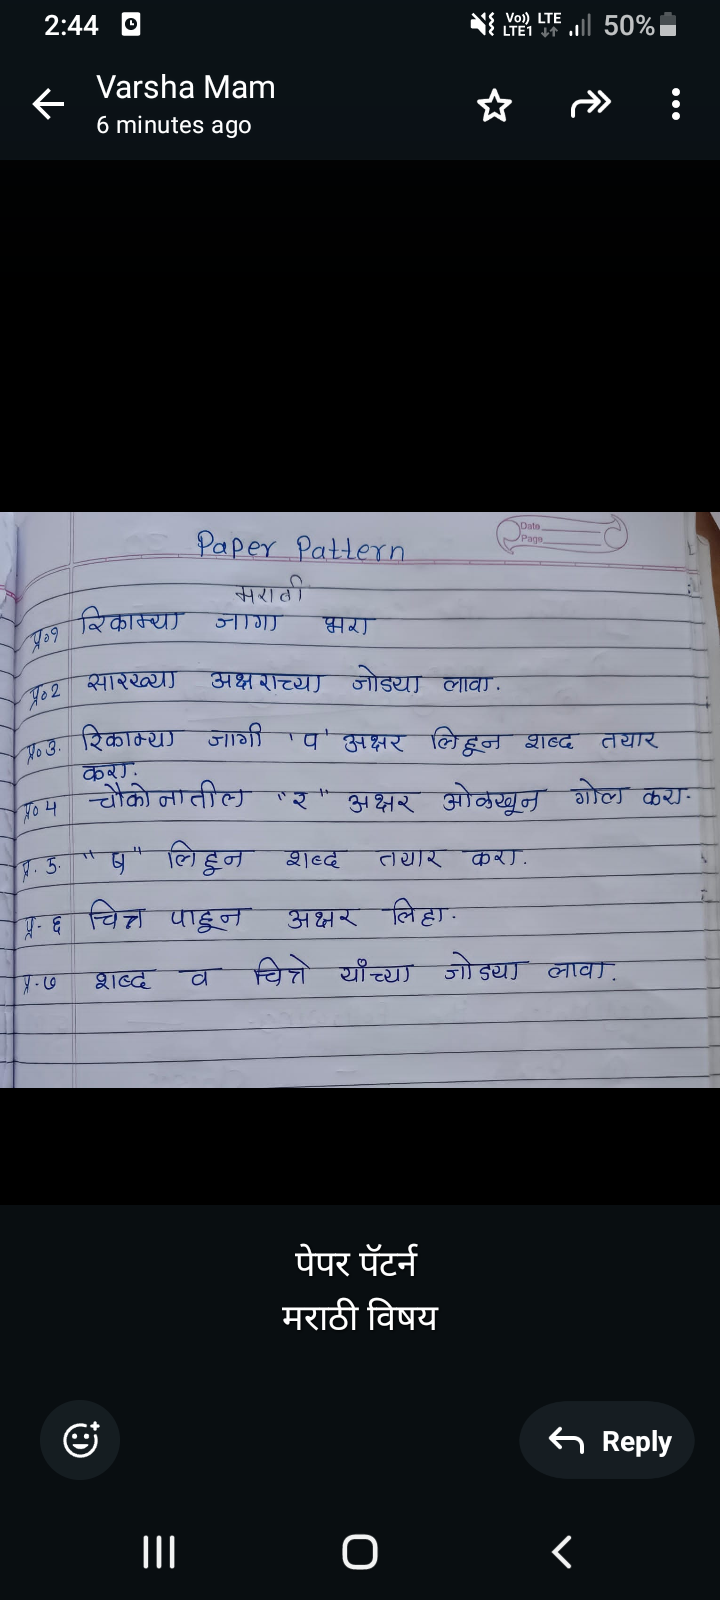 2:44
Vo)) LTE
LTE1
50%
Varsha Mam
6 minutes ago
Date
Page
Paper Pattern
मराठी
प्र०१ रिकाम्या जागा भरा
प्र०2 सारख्या अक्षराच्या जोड्या लावा.
प्र०3. रिकाम्या जागी 'प' अक्षर लिहून शब्द तयार
करा.
प्र०4 चौकोनातील "र" अक्षर ओळखून गोल करा.
प्र. 5. "ष" लिहून शब्द तयार करा.
प्र. ६ चित्र पाहून अक्षर लिहा.
प्र.७ शब्द व चित्रे यांच्या जोड्या लावा.
पेपर पॅटर्न
मराठी विषय
Reply